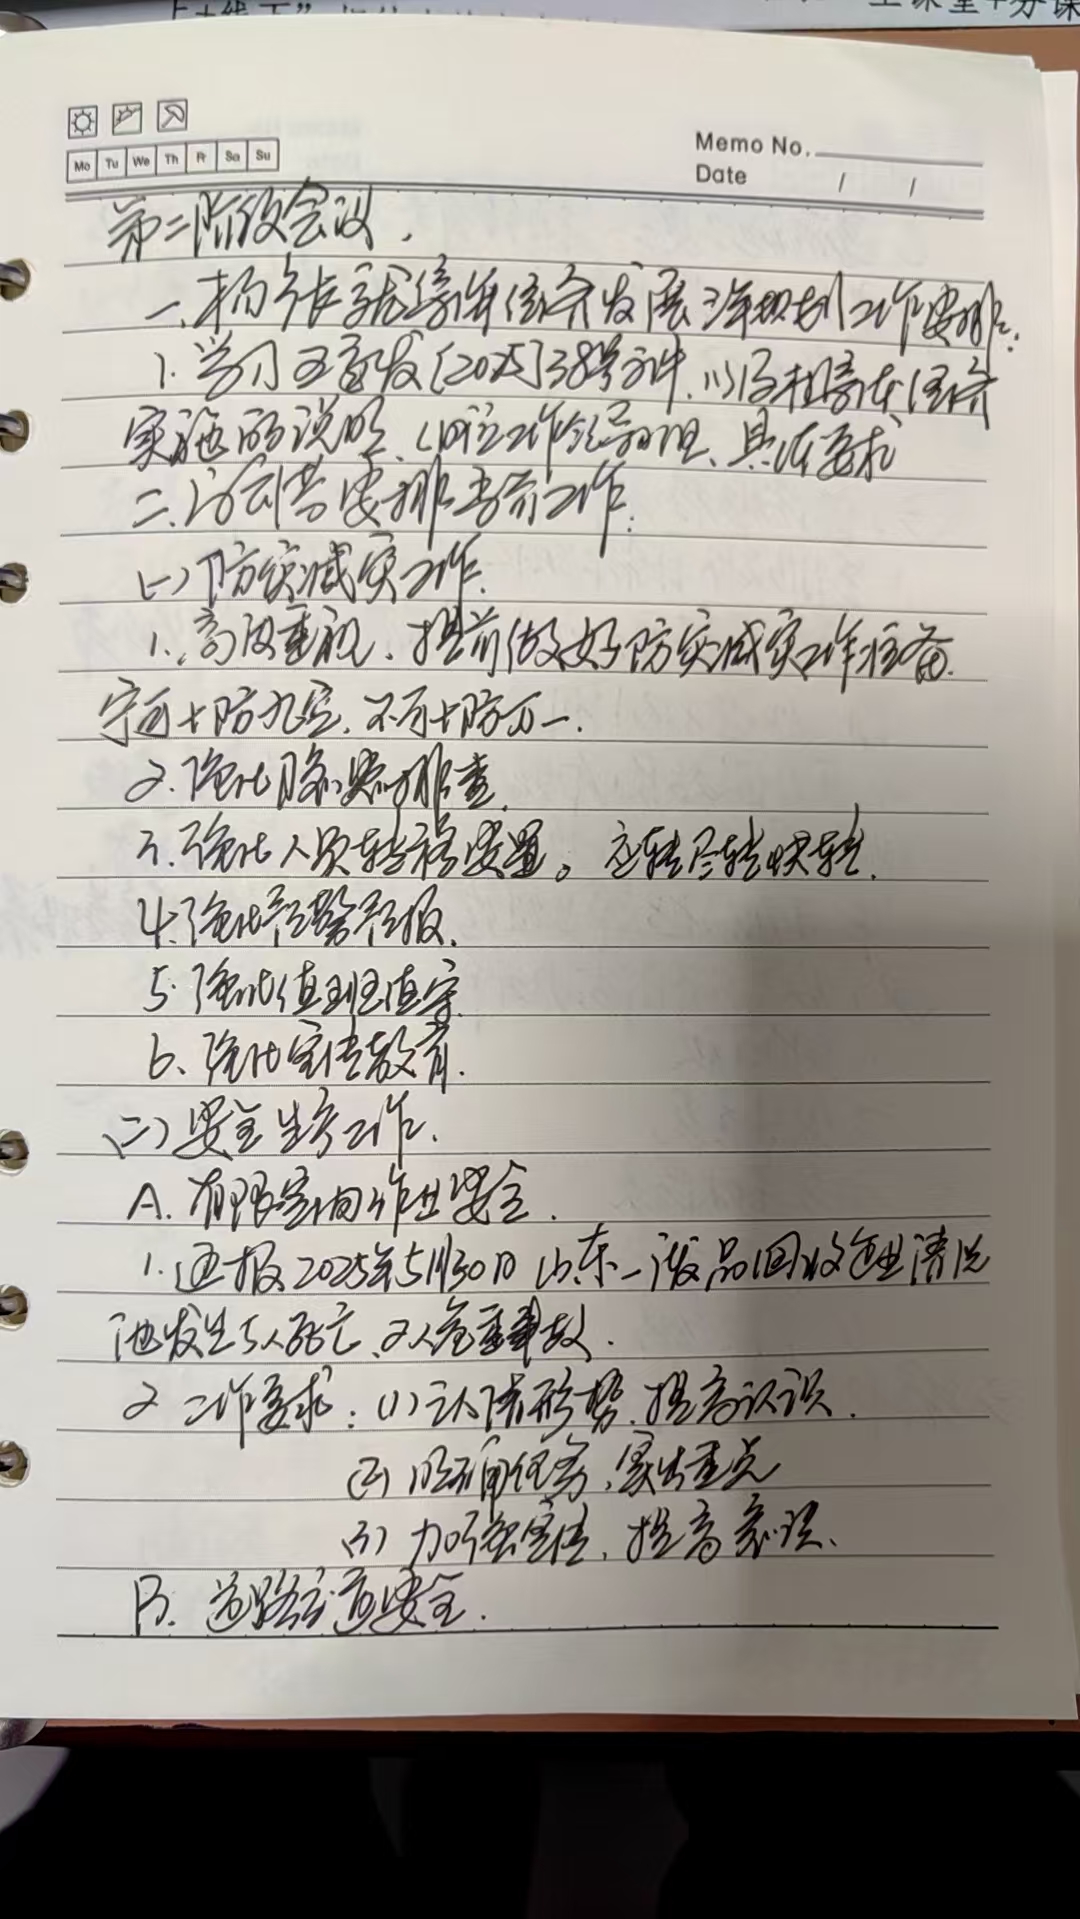 上+线下"
上课堂+分课
Mo Tu We Th Fr Sa Su
Memo No.
Date / /
第二阶段会议.
一、杨乡长就 发展 规划工作安排:
1. 学习 发[2025]38号文件、以及
实施的说明、 工作领导组、具体要求
二、 安排当前工作:
(一)防灾减灾工作.
1. 高度重视、提前做好防灾减灾工作准备.
宁可十防九空、不可十防万一.
2. 强化隐患排查.
3. 强化人员转移安置。应转尽转快转.
4. 强化预警预报.
5. 强化值班值守.
6. 强化宣传教育.
(二)安全生产工作.
A. 有限空间作业安全.
1. 通报2025年5月30日山东一废品回收企业清洗
池发生5人死亡、2人危重事故.
2 工作要求: (1)认清形势、提高认识.
(2) 明确任务、突出重点
(3) 加强宣传、提高意识.
B. 道路交通安全.